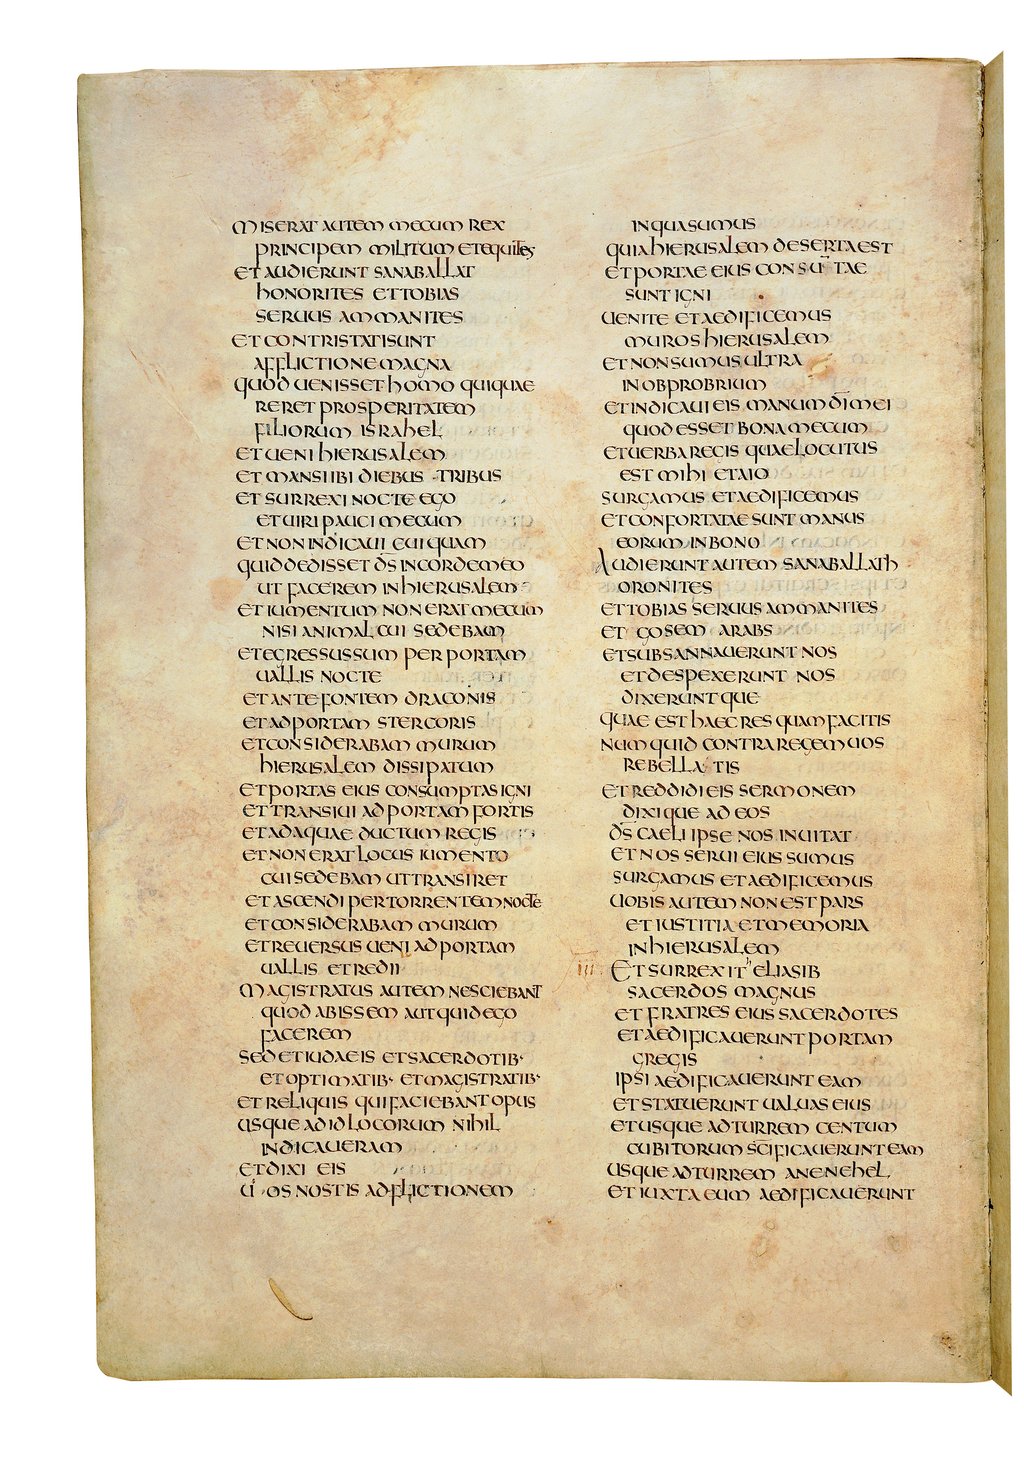 MISERAT AUTEM MECUM REX
PRINCIPEM MILITUM ET EQUITES
ET AUDIERUNT SANABALLAT
HONORITES ET TOBIAS
SERUUS AMMANITES
ET CONTRISTATI SUNT
AFFLICTIONE MAGNA
QUOD UENISSET HOMO QUI QUAE
RERET PROSPERITATEM
FILIORUM ISRAHEL
ET UENI HIERUSALEM
ET MANSI IBI DIEBUS TRIBUS
ET SURREXI NOCTE EGO
ET UIRI PAUCI MECUM
ET NON INDICAUI CUIQUAM
QUID DEDISSET D̄S IN CORDE MEO
UT FACEREM IN HIERUSALEM
ET IUMENTUM NON ERAT MECUM
NISI ANIMAL CUI SEDEBAM
ET EGRESSUS SUM PER PORTAM
UALLIS NOCTE
ET ANTE FONTEM DRACONIS
ET AD PORTAM STERCORIS
ET CONSIDERABAM MURUM
HIERUSALEM DISSIPATUM
ET PORTAS EIUS CONSUMPTAS IGNI
ET TRANSIUI AD PORTAM FORTIS
ET AD AQUAE DUCTUM REGIS
ET NON ERAT LOCUS IUMENTO
CUI SEDEBAM UT TRANSIRET
ET ASCENDI PER TORRENTEM NOCTE
ET CONSIDERABAM MURUM
ET REUERSUS UENI AD PORTAM
UALLIS ET REDII
MAGISTRATUS AUTEM NESCIEBANT
QUOD ABISSEM AUT QUID EGO
FACEREM
SED ET IUDAEIS ET SACERDOTIB·
ET OPTIMATIB· ET MAGISTRATIB·
ET RELIQUIS QUI FACIEBANT OPUS
USQUE AD ID LOCORUM NIHIL
INDICAUERAM
ET DIXI EIS
UOS NOSTIS ADFLICTIONEM
IN QUA SUMUS
QUIA HIERUSALEM DESERTA EST
ET PORTAE EIUS CONSU̅TAE
SUNT IGNI
UENITE ET AEDIFICEMUS
MUROS HIERUSALEM
ET NON SUMUS ULTRA
IN OBPROBRIUM
ET INDICAUI EIS MANUM D̄I MEI
QUOD ESSET BONA MECUM
ET UERBA REGIS QUAE LOCUTUS
EST MIHI ET AIO
SURGAMUS ET AEDIFICEMUS
ET CONFORTATAE SUNT MANUS
EORUM IN BONO
AUDIERUNT AUTEM SANABALLATH
ORONITES
ET TOBIAS SERUUS AMMANITES
ET GOSEM ARABS
ET SUBSANNAUERUNT NOS
ET DESPEXERUNT NOS
DIXERUNTQUE
QUAE EST HAEC RES QUAM FACITIS
NUMQUID CONTRA REGEM UOS
REBELLATIS
ET REDDIDI EIS SERMONEM
DIXIQUE AD EOS
D̄S CAELI IPSE NOS INUITAT
ET NOS SERUI EIUS SUMUS
SURGAMUS ET AEDIFICEMUS
UOBIS AUTEM NON EST PARS
ET IUSTITIA ET MEMORIA
IN HIERUSALEM
III ET SURREXIT HELIASIB
SACERDOS MAGNUS
ET FRATRES EIUS SACERDOTES
ET AEDIFICAUERUNT PORTAM
GREGIS
IPSI AEDIFICAUERUNT EAM
ET STATUERUNT UALUAS EIUS
ET USQUE AD TURREM CENTUM
CUBITORUM SC̄IFICAUERUNT EAM
USQUE AD TURREM ANENEHEL
ET IUXTA EUM AEDIFICAUERUNT